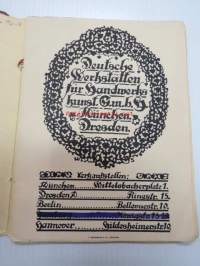 Deutsche
Werkstätten
für Handwerks
kunst. G.m.b.H
München
Dresden.
Verkaufsstellen:
München. Wittelsbacherplatz 1.
Dresden A. Ringstr. 15.
Berlin. Bellevuestr. 10.
Hannover. Hildesheimerstr. 10